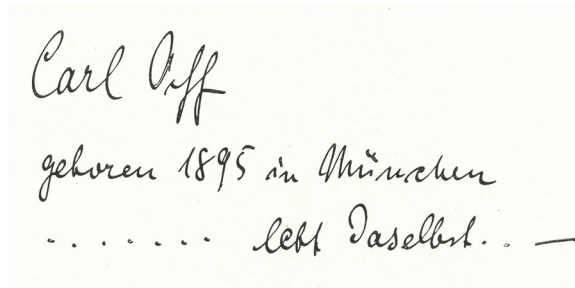 Carl Orff
geboren 1895 in München
. . . . . . . lebt Daselbst. . —